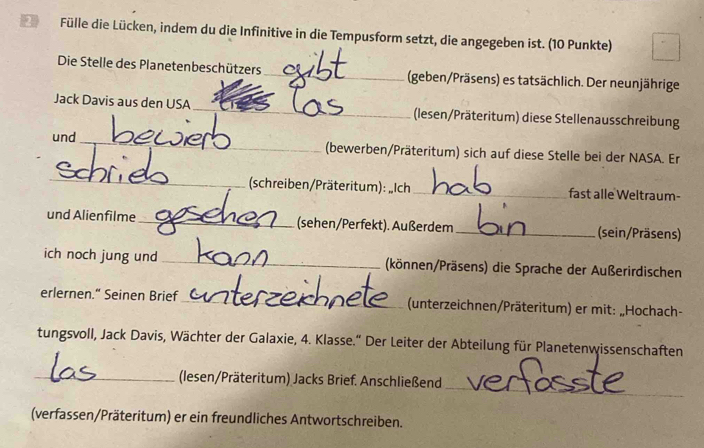 2 Fülle die Lücken, indem du die Infinitive in die Tempusform setzt, die angegeben ist. (10 Punkte)
Die Stelle des Planetenbeschützers gibt (geben/Präsens) es tatsächlich. Der neunjährige
Jack Davis aus den USA las (lesen/Präteritum) diese Stellenausschreibung
und bewierb (bewerben/Präteritum) sich auf diese Stelle bei der NASA. Er
schrieb (schreiben/Präteritum): „Ich hab fast alle Weltraum-
und Alienfilme gesehen (sehen/Perfekt). Außerdem bin (sein/Präsens)
ich noch jung und kann (können/Präsens) die Sprache der Außerirdischen
erlernen.“ Seinen Brief unterzeichnete (unterzeichnen/Präteritum) er mit: „Hochach-
tungsvoll, Jack Davis, Wächter der Galaxie, 4. Klasse.“ Der Leiter der Abteilung für Planetenwissenschaften
las (lesen/Präteritum) Jacks Brief. Anschließend verfasste
(verfassen/Präteritum) er ein freundliches Antwortschreiben.